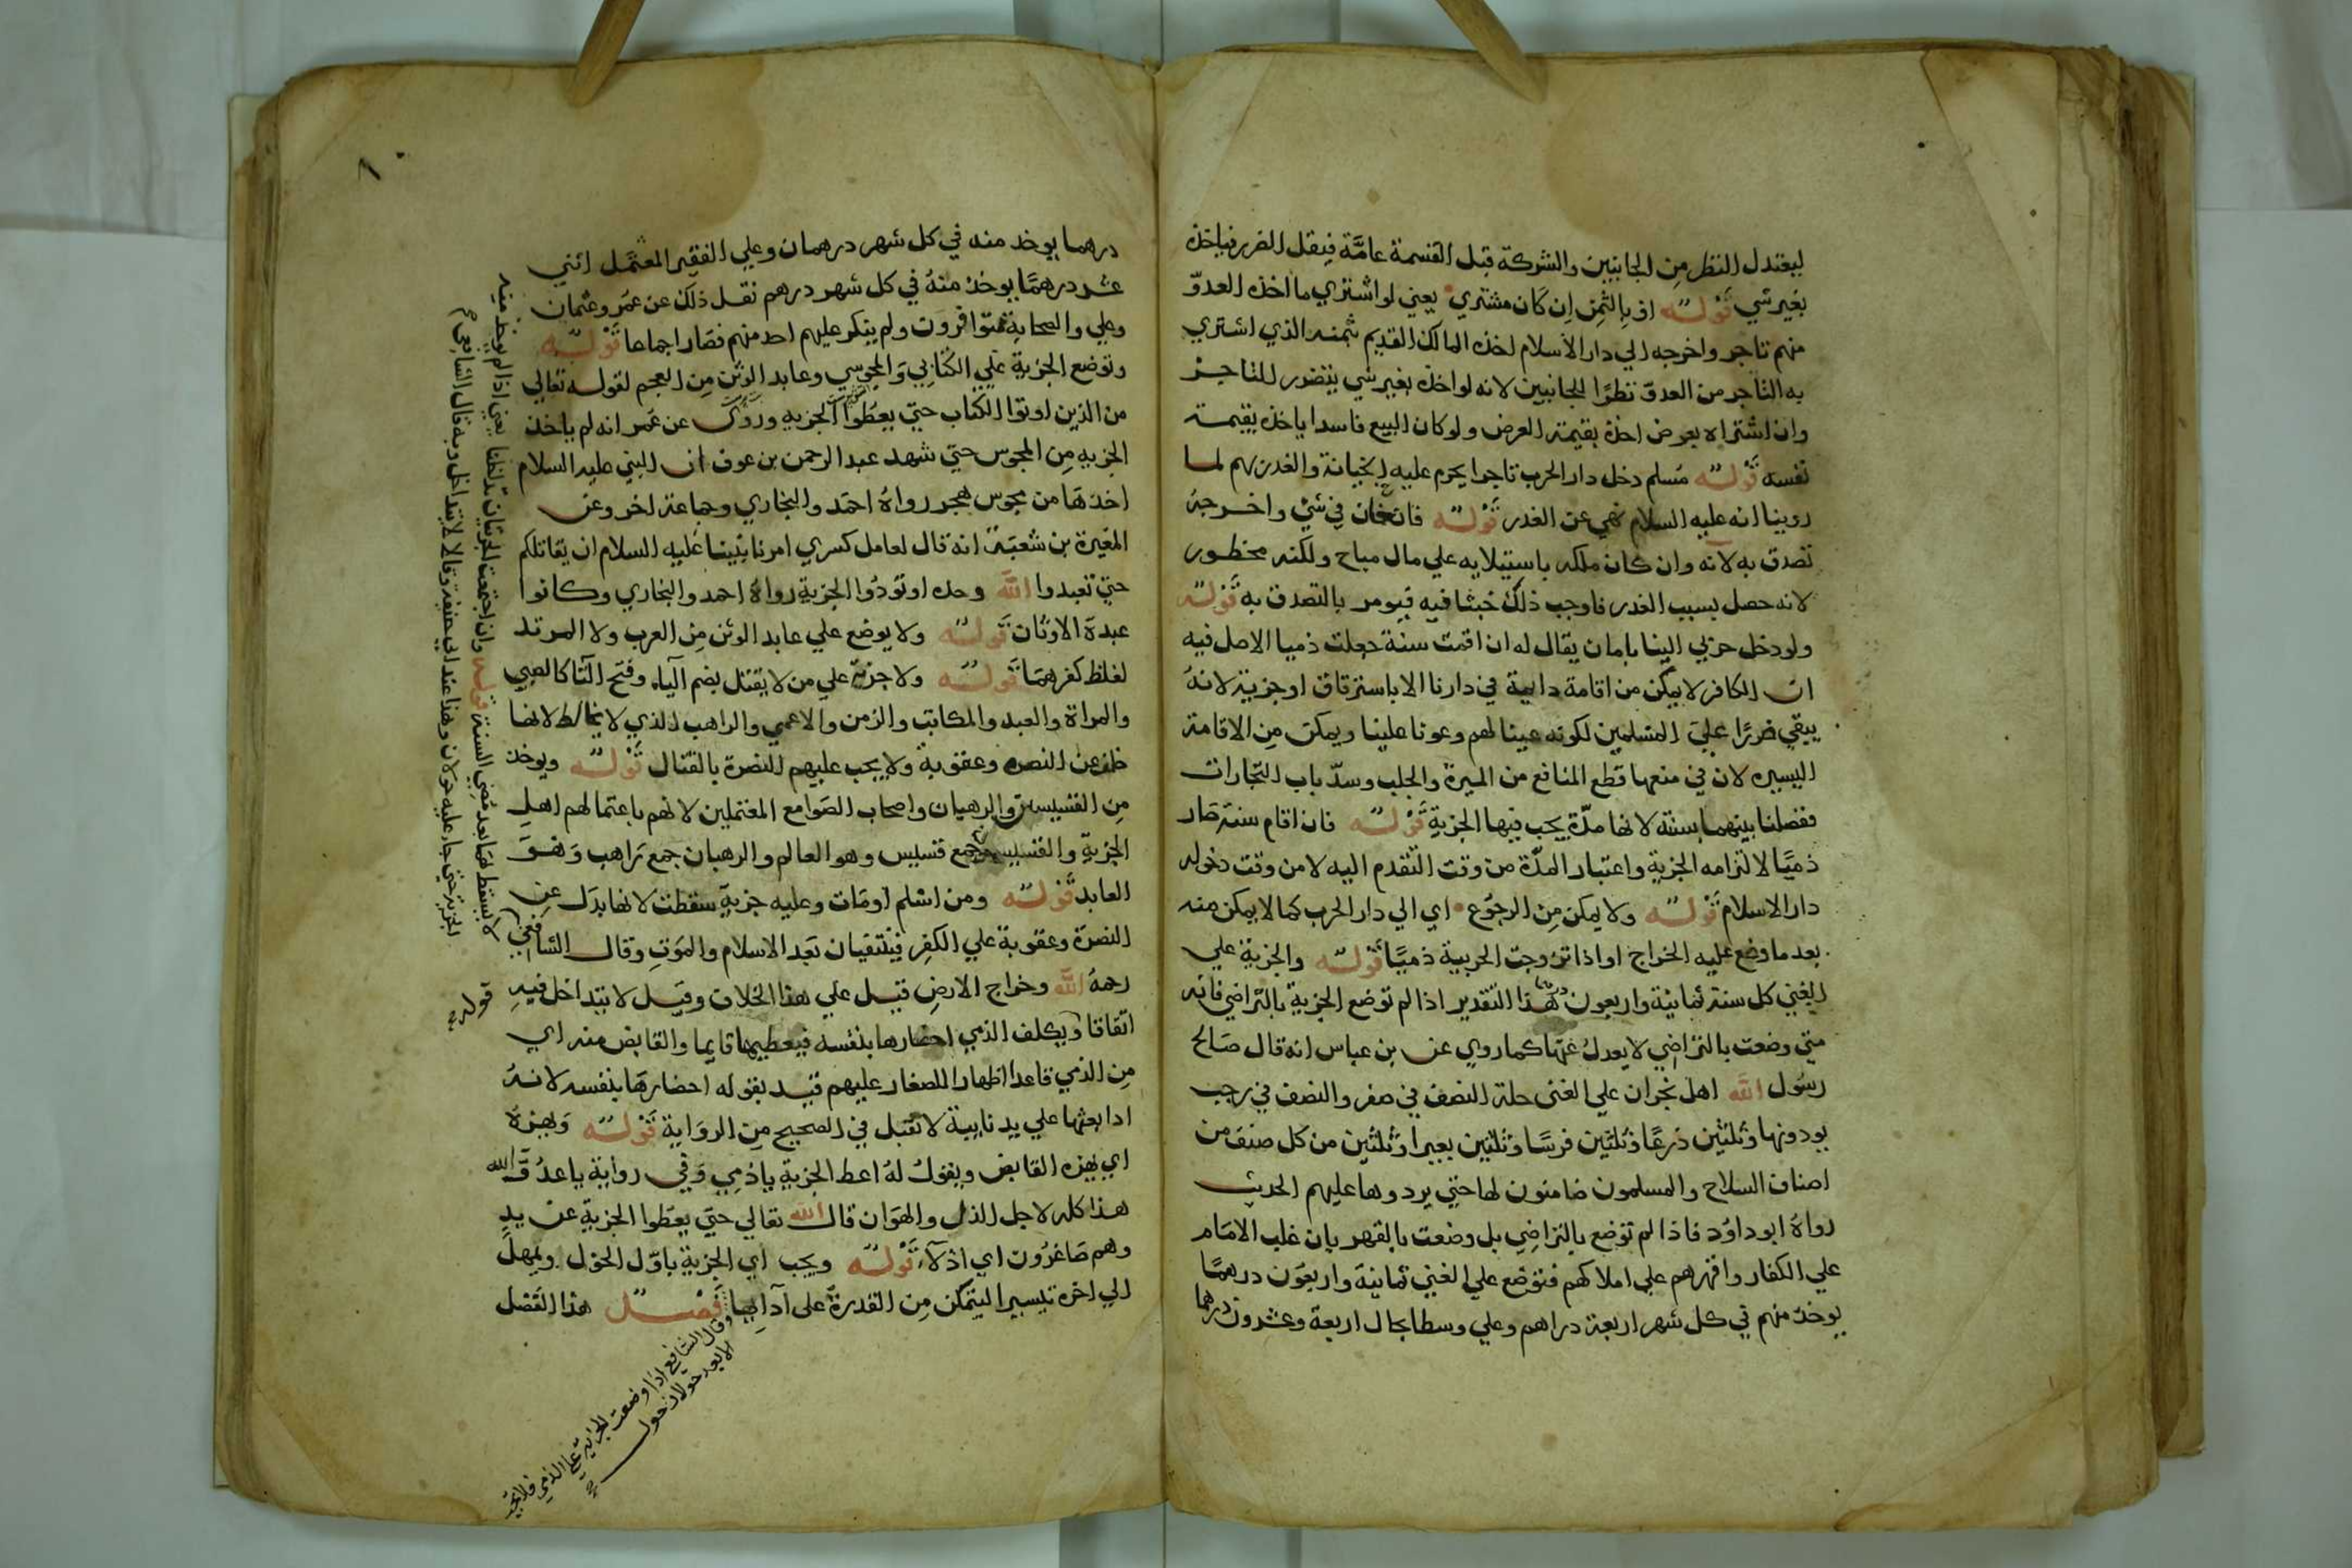 ليعتدل النظر من الجانبين والشركة قبل القسمة عامة فيقل الضرر فياخذ
بغير شي قوله او بالثمن ان كان مشتري يعني لو اشتري ما اخذ العدو
منهم تاجر واخرجه الي دار الاسلام اخذ المالك القديم بثمنه الذي اشتري
به التاجر من العدو نظرا للجانبين لانه لو اخذ بغير شي يتضرر للتاجر
وان اشتراه بعوض اخذ بقيمة العرض ولو كان البيع فاسدا ياخذ بقيمة
نفسه قوله مسلم دخل دار الحرب تاجرا يحرم عليه الخيانة والغدر بهم لما
روينا انه عليه السلام نهي عن الغدر قوله فان خان في شي واخرجه
تصدق به لانه وان كان ملكه باستيلايه علي مال مباح ولكنه محظور
لانه حصل بسبب الغدر فاوجب ذلك خبثا فيه فيومر بالتصدق به قوله
ولو دخل حربي الينا بامان يقال له ان اقمت سنة جعلت ذميا الاصل فيه
ان الكافر لا يمكن من اقامة دايمة في دارنا الا باسترقاق او جزية لانه
يبقي ضررا علي المسلمين لكونه عينا لهم وعونا علينا ويمكن من الاقامة
اليسيره لان في منعها قطع المنافع من الميرة والجلب وسد باب التجارات
ففصلنا بينهما بسنة لانها مدة يجب فيها الجزية قوله فان اقام سنة صار
ذميا لالتزامه الجزية واعتبار المدة من وقت التقدم اليه لا من وقت دخوله
دار الاسلام قوله ولا يمكن من الرجوع اي الي دار الحرب كما لا يمكن منه
بعد ما وضع عليه الخراج او اذا تزوجت الحربية ذميا قوله والجزية علي
الغني كل سنة ثمانية واربعون وهذا التقدير اذا لم توضع الجزية بالتراضي فانه
متي وضعت بالتراضي لا يعدل عنها كما روي عن بن عباس انه قال صالح
رسول الله اهل نجران علي الفي حلة النصف في صفر والنصف في رجب
يودونها وثلثين درعا وثلثين فرسا وثلثين بعيرا وثلثين من كل صنف من
اصناف السلاح والمسلمون ضامنون لها حتي يردوها عليهم الحديث
رواه ابو داود فاذا لم توضع بالتراضي بل وضعت بالقهر بان غلب الامام
علي الكفار واقرهم علي املاكهم فتوضع علي الغني ثمانية واربعون درهما
يوخذ منهم في كل شهر اربعة دراهم وعلي وسط الحال اربعة وعشرون درهما
درهما يوخذ منه في كل شهر درهمان وعلي الفقير المعتمل اثني
عشر درهما يوخذ منه في كل شهر درهم نقل ذلك عن عمر وعثمان
وعلي والصحابة متوافرون ولم ينكر عليهم احد منهم فصار اجماعا قوله
وتوضع الجزية علي الكتابي والمجوسي وعابد الوثن من العجم لقوله تعالي
من الذين اوتوا الكتاب حتي يعطوا الجزيه وروي عن عمر انه لم ياخذ
الجزيه من المجوس حتي شهد عبد الرحمن بن عوف ان النبي عليه السلام
اخذها من مجوس هجر رواه احمد والبخاري وجماعة اخر وعن
المغيرة بن شعبة انه قال لعامل كسري امرنا نبينا عليه السلام ان يقاتلكم
حتي تعبدوا الله وحده او تودوا الجزية رواه احمد والبخاري وكانوا
عبدة الاوثان قوله ولا يوضع علي عابد الوثن من العرب ولا المرتد
لغلظ كفرهما قوله ولا جزية علي من لا يقتل بضم الياء وفتح التا كالصبي
والمراة والعبد والمكاتب والزمن والاعمي والراهب الذي لا يخالط لانها
خلف عن النصره وعقوبة ولا يجب عليهم النصرة بالقتال قوله ويوخذ
من القسيسين والرهبان واصحاب الصوامع المعتملين لانهم باعتمالهم اهل
الجزية والقسيسين جمع قسيس وهو العالم والرهبان جمع راهب وهو
العابد قوله ومن اسلم او مات وعليه جزية سقطت لانها بدل عن
النصرة وعقوبة علي الكفر فينتفيان بعد الاسلام والموت وقال الشافعي
رحمه الله وخراج الارض قيل علي هذا الخلاف وقيل لا يتداخل فيه
اتفاقا ويكلف الذمي احضارها بنفسه فيعطيها قايما والقابض منه اي
من الذمي قاعدا اظهارا للصغار عليهم قيد بقوله احضارها بنفسه لانه
اذا بعثها علي يد نايبه لا تقبل في الصحيح من الرواية قوله ويهزه
اي يهزه القابض ويقول له اعط الجزية يا ذمي وفي رواية يا عدو الله
هذا كله لاجل الذل والهوان قال الله تعالي حتي يعطوا الجزية عن يد
وهم صاغرون اي اذلاء قوله ويجب اي الجزية باول الحول ويمهل
الي اخره تيسيرا ليتمكن من القدرة على ادايها فصل هذا الفصل
وقال الشافعي اذا وضعت الجزية علي الذمي فلا تجب
الا بعد حولان حول
لا يسقط لهما بعد مضي السنة قوله وان اجتمعت الجزيتان تداخلتا يعني اذا لم يوخذ منه
الجزية حتي حال عليه حولان وهذا عند ابي حنيفة وقالا لا يتداخل وبه قال الشافعي
قوله